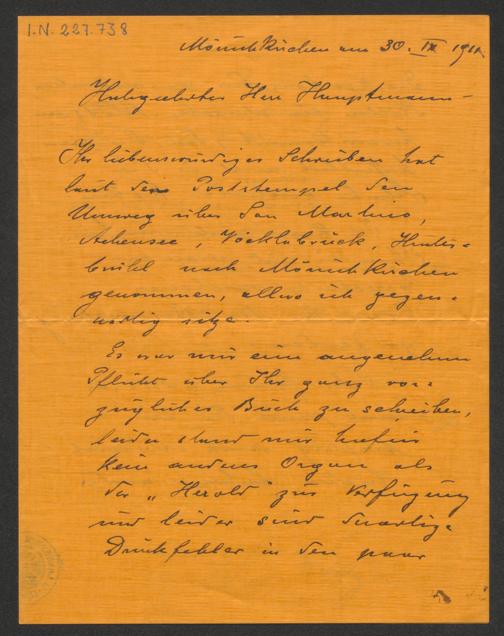 I.N. 227.738
Mönichkirchen am 30. IX 191
Hochgeehrter Herr Hauptmann –
Ihr liebenswürdiges Schreiben hat
laut den Poststempel den
Umweg über San Martino,
Achensee, Vöcklabrück, Hinter-
brühl nach Mönichkirchen
genommen, allwo ich gegen-
wärtig sitze.
Es war mir eine angenehme
Pflicht über Ihr ganz vor-
zügliches Buch zu schreiben,
leider stand mir hiefür
kein anderes Organ als
der „Herold" zur Verfügung
und leider sind derartige
Druckfehler in den paar